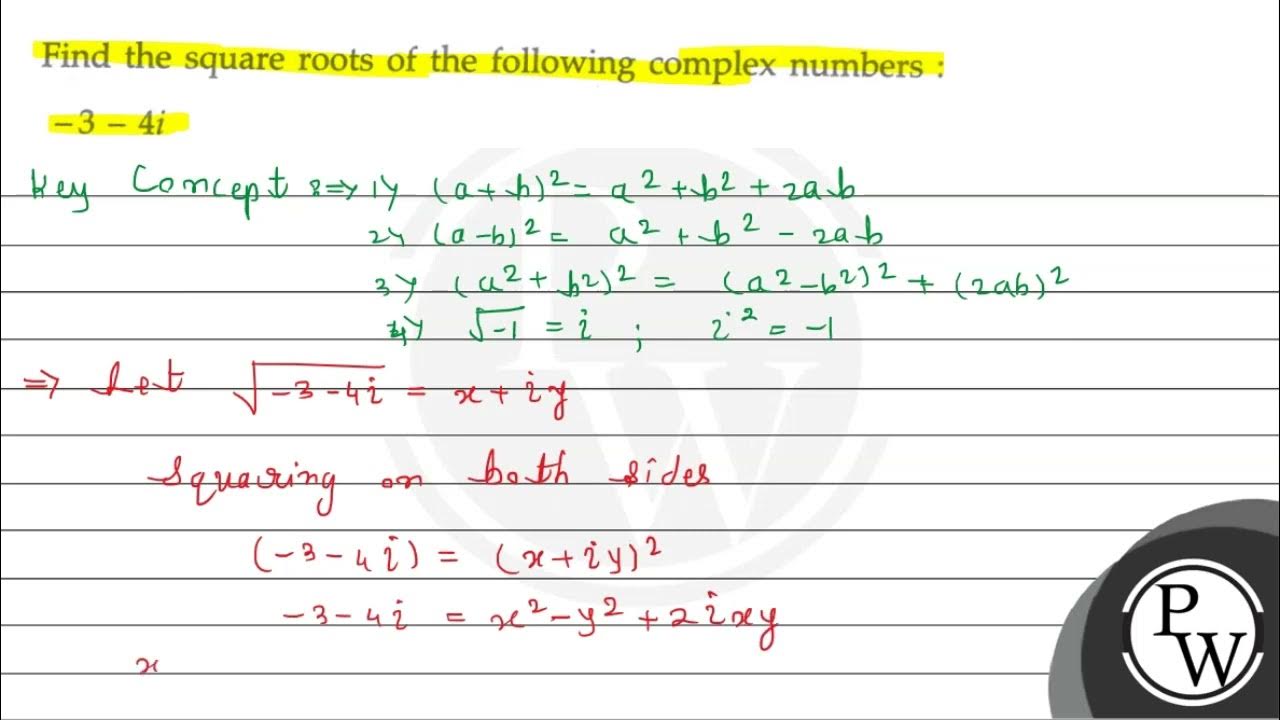 Find the square roots of the following complex numbers :
−3 − 4i
Key Concept :⇒ 1) (a+b)² = a² + b² + 2ab
2) (a−b)² = a² + b² − 2ab
3) (a² + b²)² = (a² − b²)² + (2ab)²
4) √−1 = i ; i² = −1
⇒ Let √−3−4i = x + iy
Squaring on both sides
(−3−4i) = (x+iy)²
−3−4i = x² − y² + 2ixy
x
P
W
PW